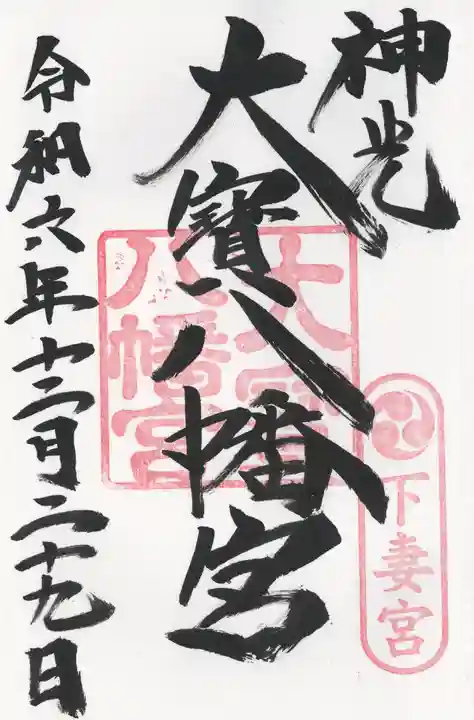 神光
下妻宮
大寳八幡宮
大寳
八幡宮
令和六年十二月二十九日